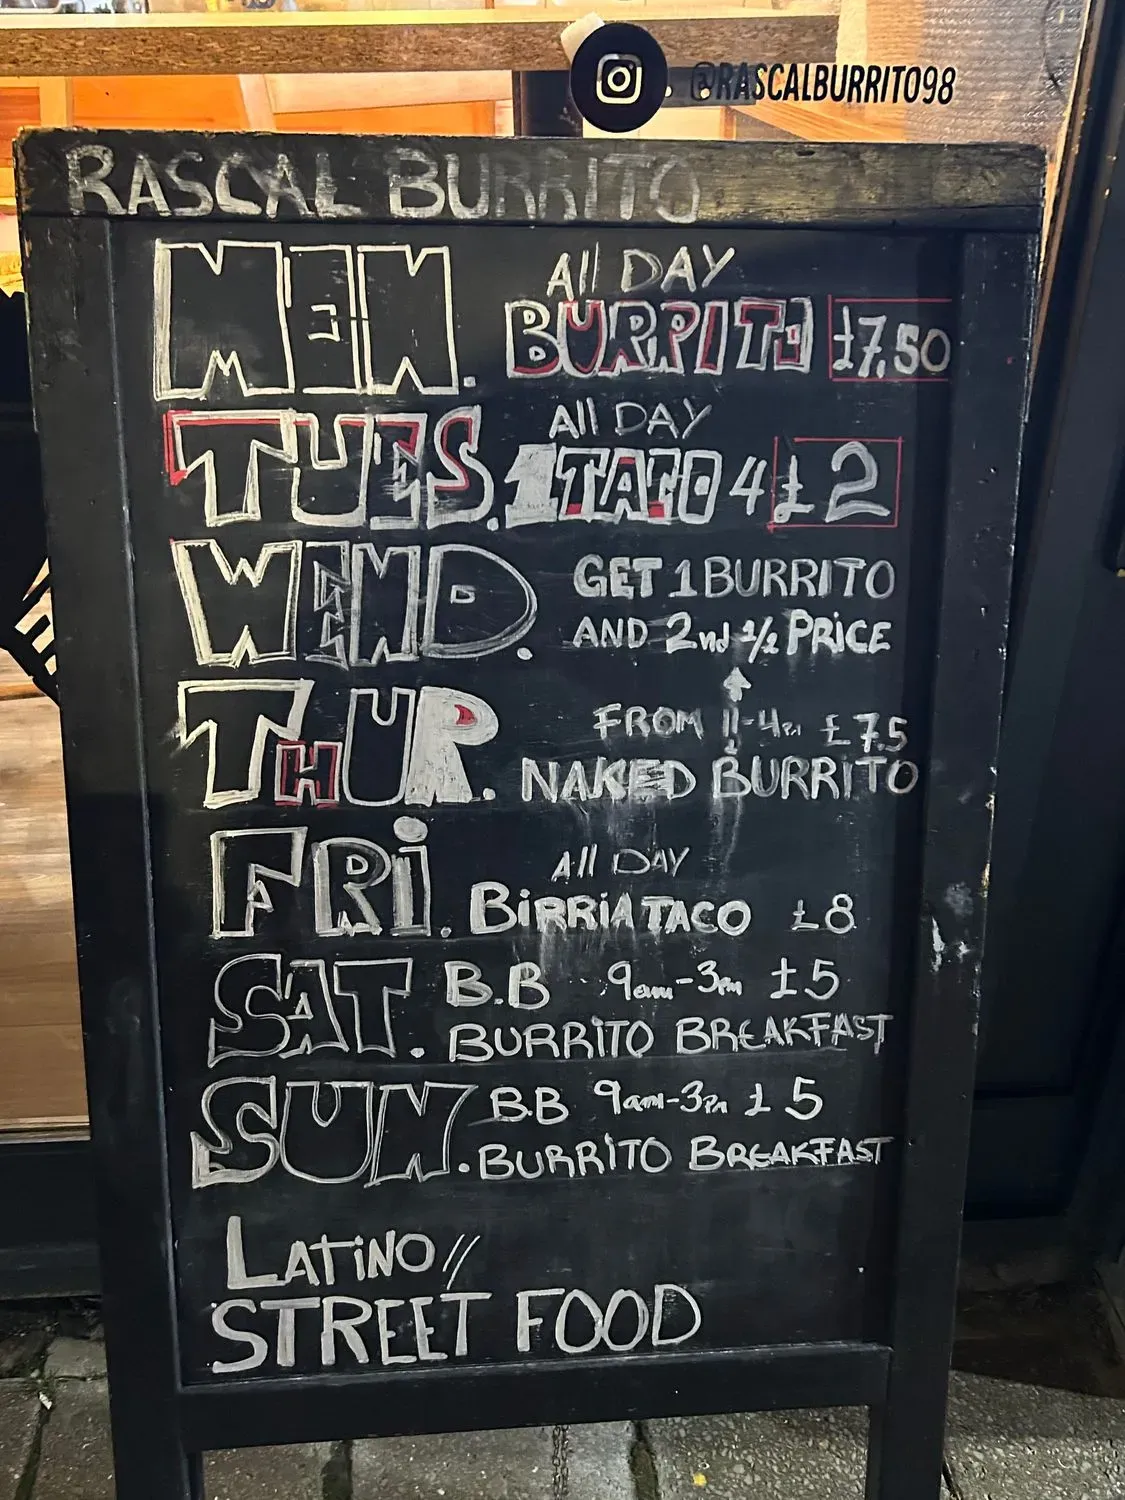 @RASCALBURRITO98
RASCAL BURRITO
MEN. All DAY
BURRITO £7.50
TUES. All DAY
1 TACO 4 £2
WEND. GET 1 BURRITO
AND 2nd 1/2 PRICE
THUR. FROM 11-4PM £7.5
NAKED BURRITO
FRi. All DAY
BiRRiA TACO £8
SAT. B.B 9am-3pm £5
BURRiTO BREAKFAST
SUN. BB 9am-3pm £5
BURRiTO BREAKFAST
LATiNO//
STREET FOOD